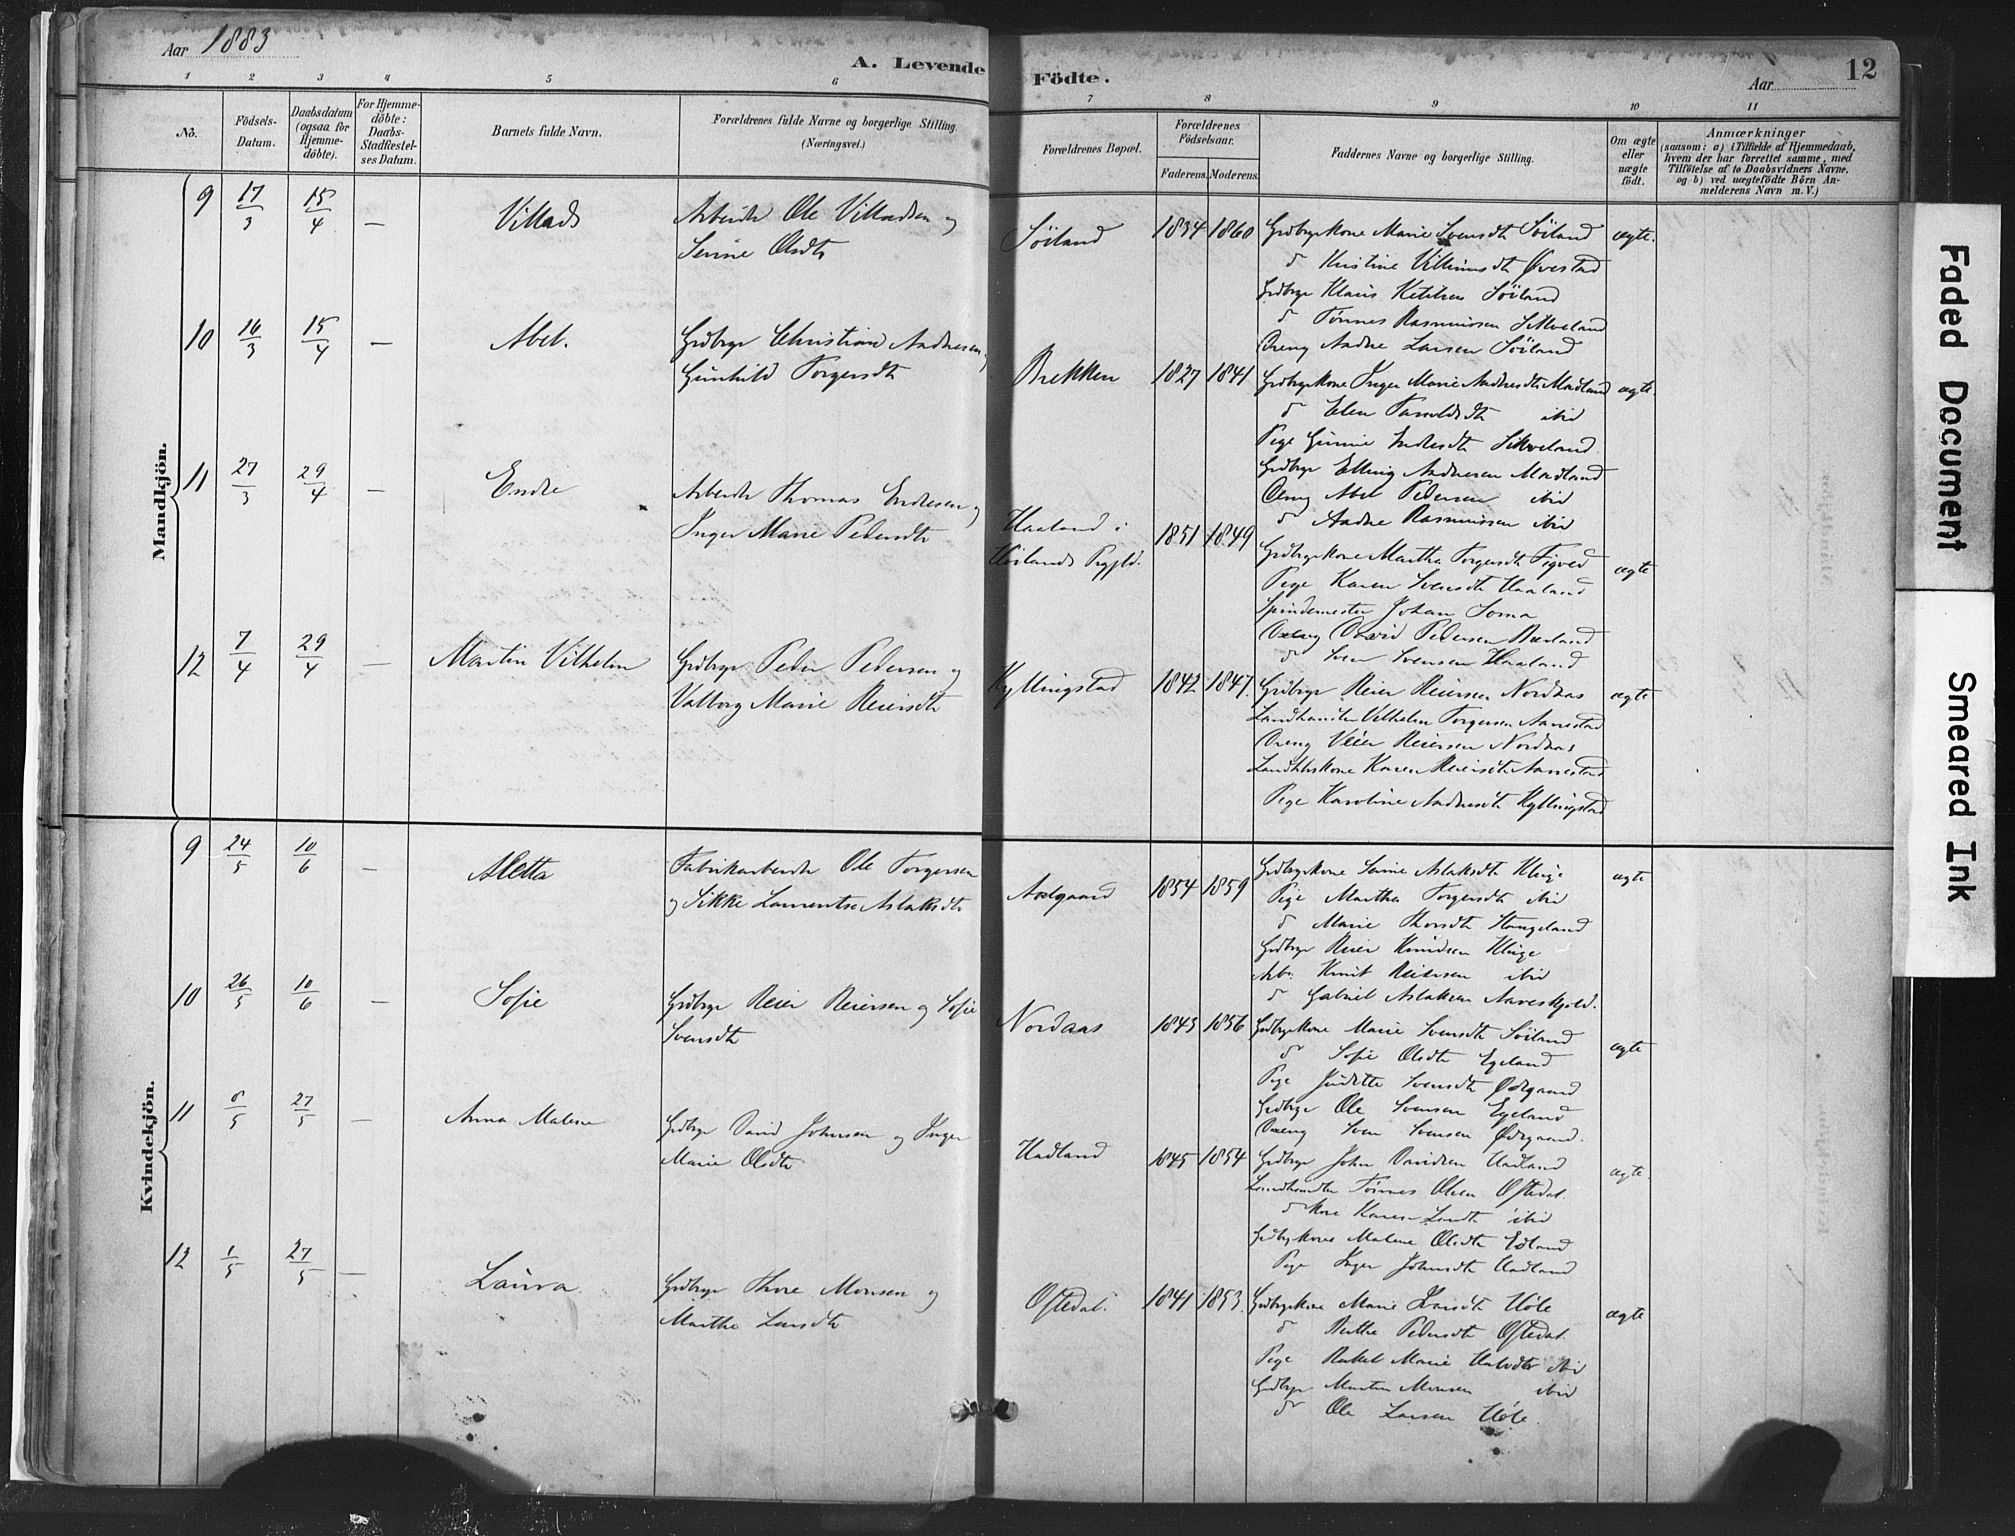 Aar 1883
A. Levende Födte.
Aar
12
1 2 3 4 5 6 7 8 9 10 11
No.
Födsels-Datum.
Daabsdatum (ogsaa for Hjemme-döbte).
For Hjemme-döbte: Daabs-Stadfæstel-ses Datum.
Barnets fulde Navn.
Forældrenes fulde Navne og borgerlige Stilling. (Næringsvei.)
Forældrenes Bopæl.
Forældrenes Födselsaar.
Faderens. Moderens.
Faddernes Navne og borgerlige Stilling.
Om ægte eller uægte födt.
Anmærkninger
(saasom: a) i Tilfælde af Hjemmedaab,
hvem der har forrettet samme, med
Tilföielse af to Daabsvidners Navne,
og b) ved uægtefödte Börn An-
melderens Navn m. V.)
Mandkjön.
9 17/3 15/4 — Villads
Arbeider Ole Villadsen og
Serine Olsdtr
Söiland 1834 1860
Grdbrgkone Marie Svensdtr Söiland ægte.
d Kristine Øvestad
Grdbrgr Klaus Söiland
d Tønnes Rasmussen Sikveland
Dreng Andre Larsen Söiland
10 16/3 15/4 — Abel.
Grdbrgr Christian Andresen og
Gunhild Torgersdtr
Brekken 1827 1841
Grdbrgkone Inger Marie Andresdtr Madland ægte.
d Elen ibid
Pige Gunnie Endresdtr Sikveland
Grdbrgr Elling Andresen Madland
Dreng Abel Pedersen ibid
d Andre Rasmussen ibid
11 27/3 29/4 — Endre
Arbeider Thomas Endresen og
Inger Marie Pedersdtr
Haaland i
Höilands Prgjld.
1851 1849
Grdbrgkone Martha Torgersdtr Figved ægte
Pige Karen Svensdtr Haaland
Spindemester Johan Soma
Dreng David Pedersen
d Sven Svensen Haaland
12 7/4 29/4 — Martin Vilhelm
Grdbrgr Peder Pedersen og
Valborg Marie Reiersdtr
Kyllingstad 1842 1847.
Grdbrgr Reier Reiersen Nordaas ægte
Landhandler Vilhelm Torgersen Aarrestad
Dreng Reiersen Nordaas
Landhkone Karen Reiersdtr Aarrestad
Pige Karoline Andresdtr Kyllingstad
Kvindekjön.
9 24/5 10/6 — Aletta
Fabrikarbeider Ole Torgersen
og Sikke Laurentse Aslaksdtr
Aalgaard 1854 1859
Grdbrgkone Aslaksdtr Kluge ægte
Pige Martha Torgersdtr ibid
d Marie Thorsdtr Stangeland
Grdbrgr Reier Knudsen Kluge
Arb. Knut Reiersen ibid
d Gabriel Aslaksen
10 26/5 10/6 — Sofie
Grdbrgr Reier Reiersen og Sofie
Svensdtr
Nordaas 1843 1856
Grdbrgkone Marie Svensdtr Söiland ægte
d Sofie Olsdtr Egeland
Pige Juditte Svensdtr Ødegaard
Grdbrgr Ole Svensen Egeland
Dreng Sven Svensen Ødegaard.
11 8/5 27/5 — Anna Malene
Grdbrgr David Johnsen og Inger
Marie Olsdtr
Hadland 1845 1854
Grdbrgr John Davidsen Hadland ægte.
Landhandler Tönnes Olsen Oftedal.
d kone Karen ibid
Grdbrgkone Malene Olsdtr Edland
Pige Inger Johnsdtr Hadland
12 1/5 27/5 — Laura.
Grdbrgr Thore Monsen og
Marthe Larsdtr
Oftedal. 1841 1853.
Grdbrgkone Marie Larsdtr Höle ægte
d Berthe Pedersdtr Oftedal.
Pige Rakel Marie ibid
Grdbrgr Morten Monsen ibid
d Ole Larsen Höle.
Faded Document
Smeared Ink